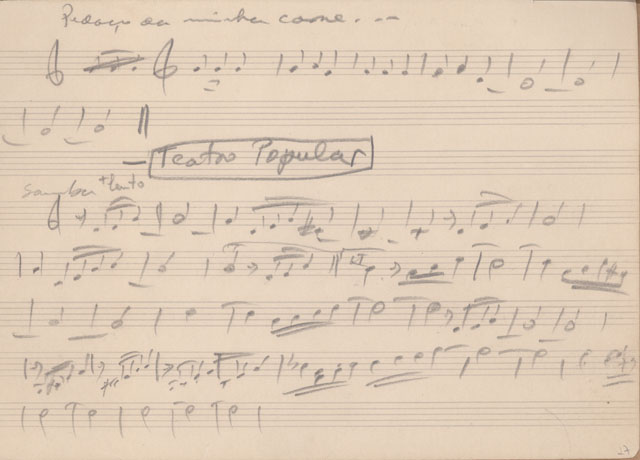 Pedaço da minha carne...
Teatro Popular
Samba + lento
17